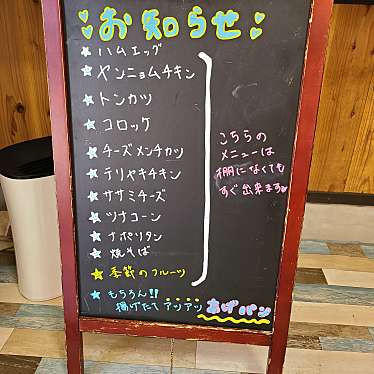 お知らせ
ハムエッグ
ヤンニョムチキン
トンカツ
コロッケ
チーズメンチカツ
テリヤキチキン
ササミチーズ
ツナコーン
ナポリタン
焼そば
季節のフルーツ
こちらの
メニューは
棚になくても
すぐ出来ます
もちろん!!
揚げたてアツアツ あげパン